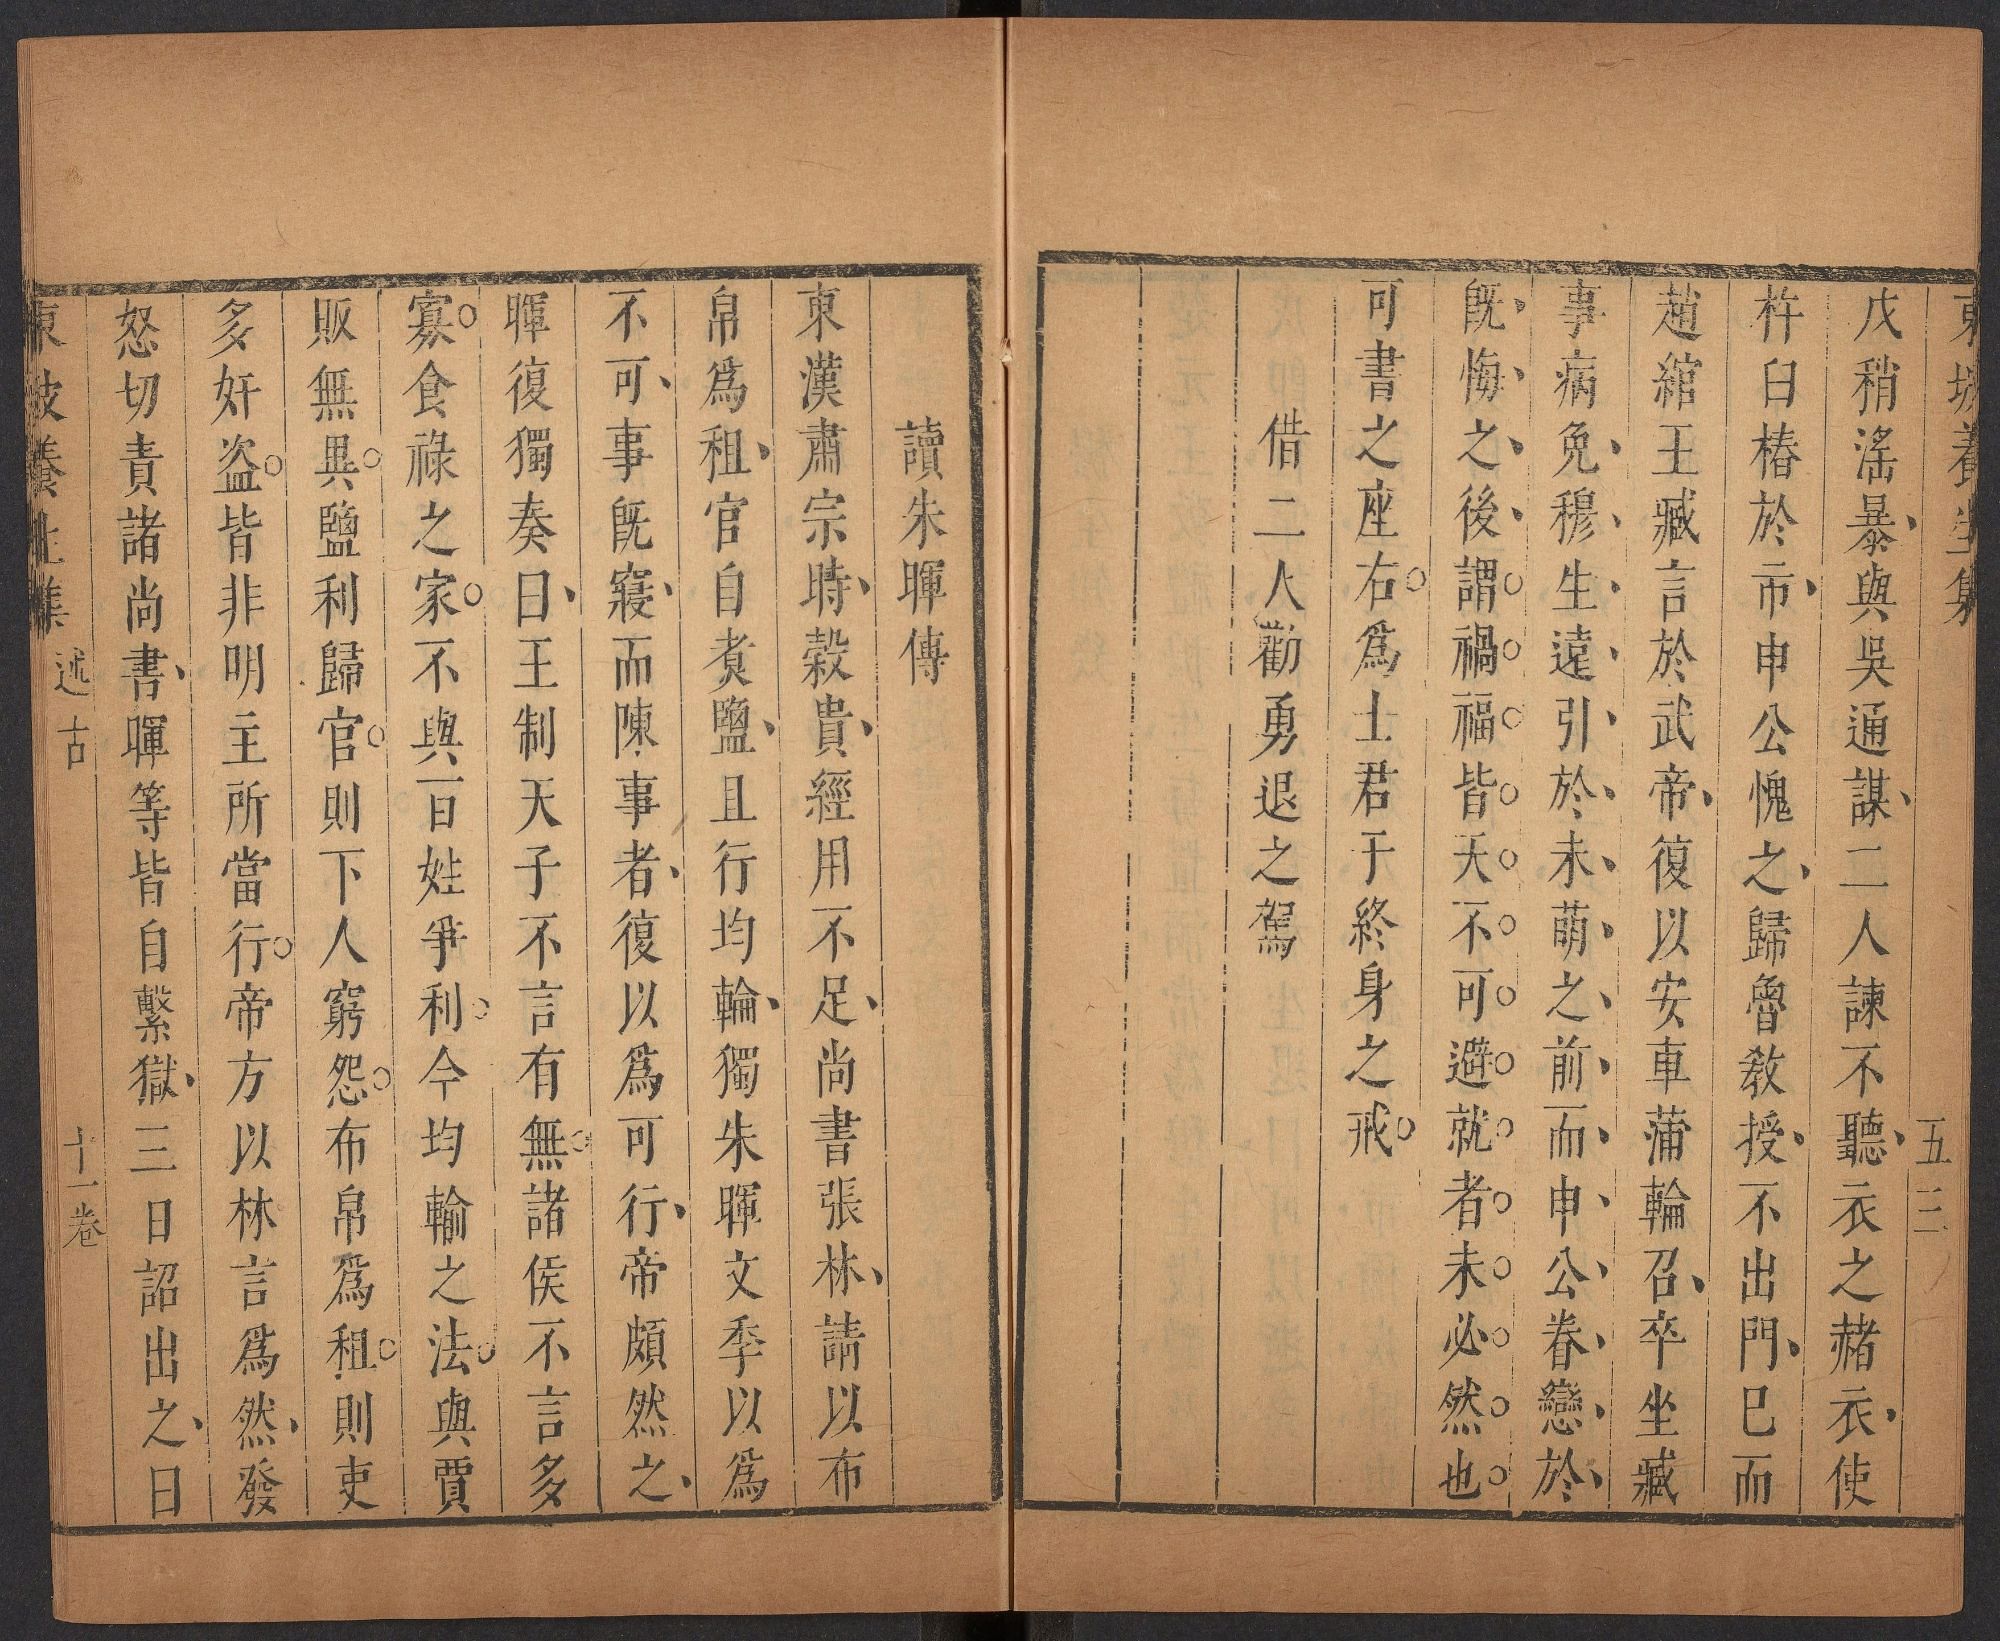 東坡養生集
五三
戊稍滛暴與吳通謀二人諫不聽衣之赭衣使
杵臼椿於市申公愧之歸魯敎授不出門巳而
趙綰王臧言於武帝復以安車蒲輪召卒坐臧
事病免穆生遠引於未萌之前而申公眷戀於
旣悔之後謂禍福皆天不可避就者未必然也
可書之座右爲士君于終身之戒
借二人勸勇退之駕
讀朱暉傳
東漢肅宗時穀貴經用不足尚書張林請以布
帛爲租官自煑鹽且行均輪獨朱暉文季以爲
不可事旣寢而陳事者復以爲可行帝頗然之
暉復獨奏曰王制天子不言有無諸侯不言多
寡食祿之家不與百姓爭利今均輸之法與賈
販無異鹽利歸官則下人窮怨布帛爲租則吏
多奸盜皆非明主所當行帝方以林言爲然發
怒切責諸尚書暉等皆自繫獄三日詔出之曰
東坡養生集 述古 十一卷